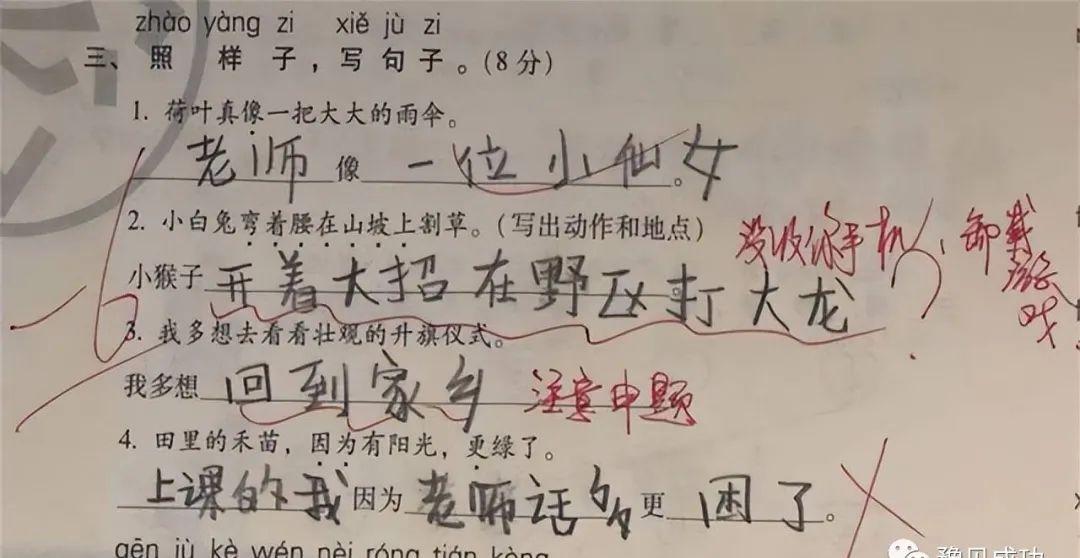 zhào yàng zi xiě jù zi
三、照样子，写句子。(8分)
1. 荷叶真像一把大大的雨伞。
老师像一位小仙女。
2. 小白兔弯着腰在山坡上割草。(写出动作和地点)
没收你手机，卸载游戏
小猴子开着大招在野区打大龙
3. 我多想去看看壮观的升旗仪式。
我多想回到家乡 注意审题
4. 田里的禾苗，因为有阳光，更绿了。
上课的我因为老师话多更困了。
gēn jù kè wén nèi róng tián kòng
豫见成功